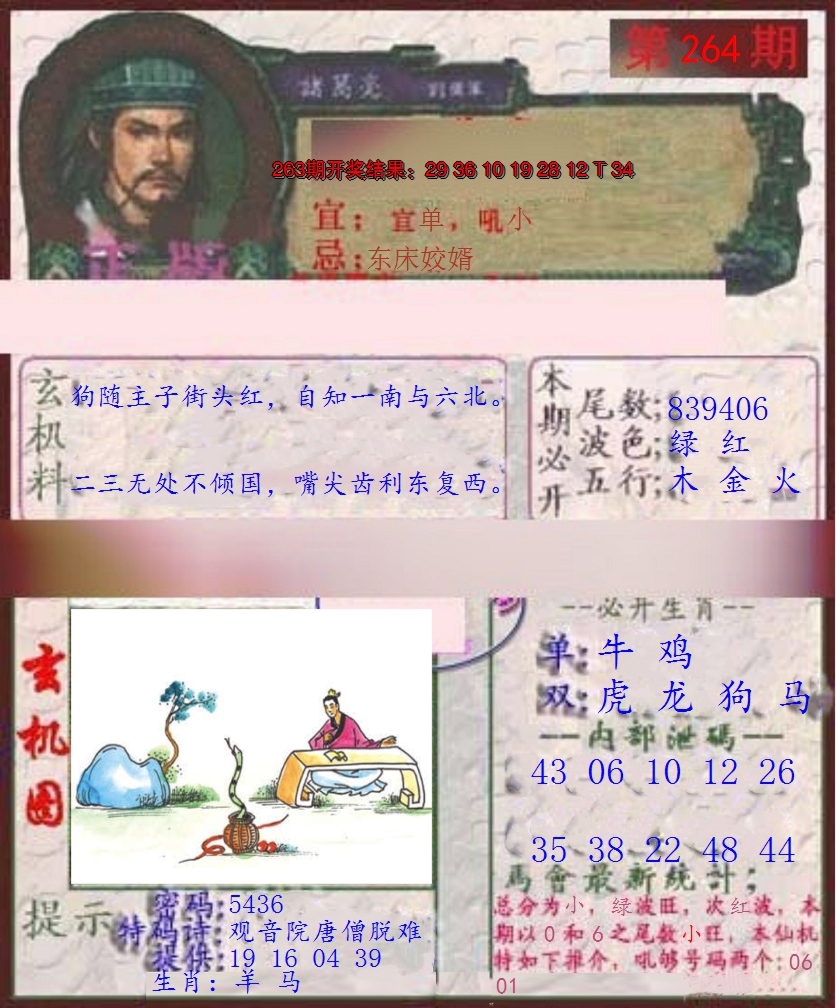 第 264 期
諸葛亮
263期开奖结果：29 36 10 19 28 12 T 34
宜：宜单，吼小
忌：东床姣婿
正版
玄机料
狗随主子街头红，自知一南与六北。
二三无处不倾国，嘴尖齿利东复西。
本期必开
尾数；839406
波色；绿 红
五行；木 金 火
玄机图
--必开生肖--
单：牛 鸡
双：虎 龙 狗 马
——内部泄碼——
43 06 10 12 26
35 38 22 48 44
馬會最新統計；
总分为小，绿波旺，次红波，本
期以０和６之尾数小旺，本仙机
特如下推介，吼够号码两个：06
01
提示
密码：5436
特码诗：观音院唐僧脱难
提供：19 16 04 39
生肖：羊 马